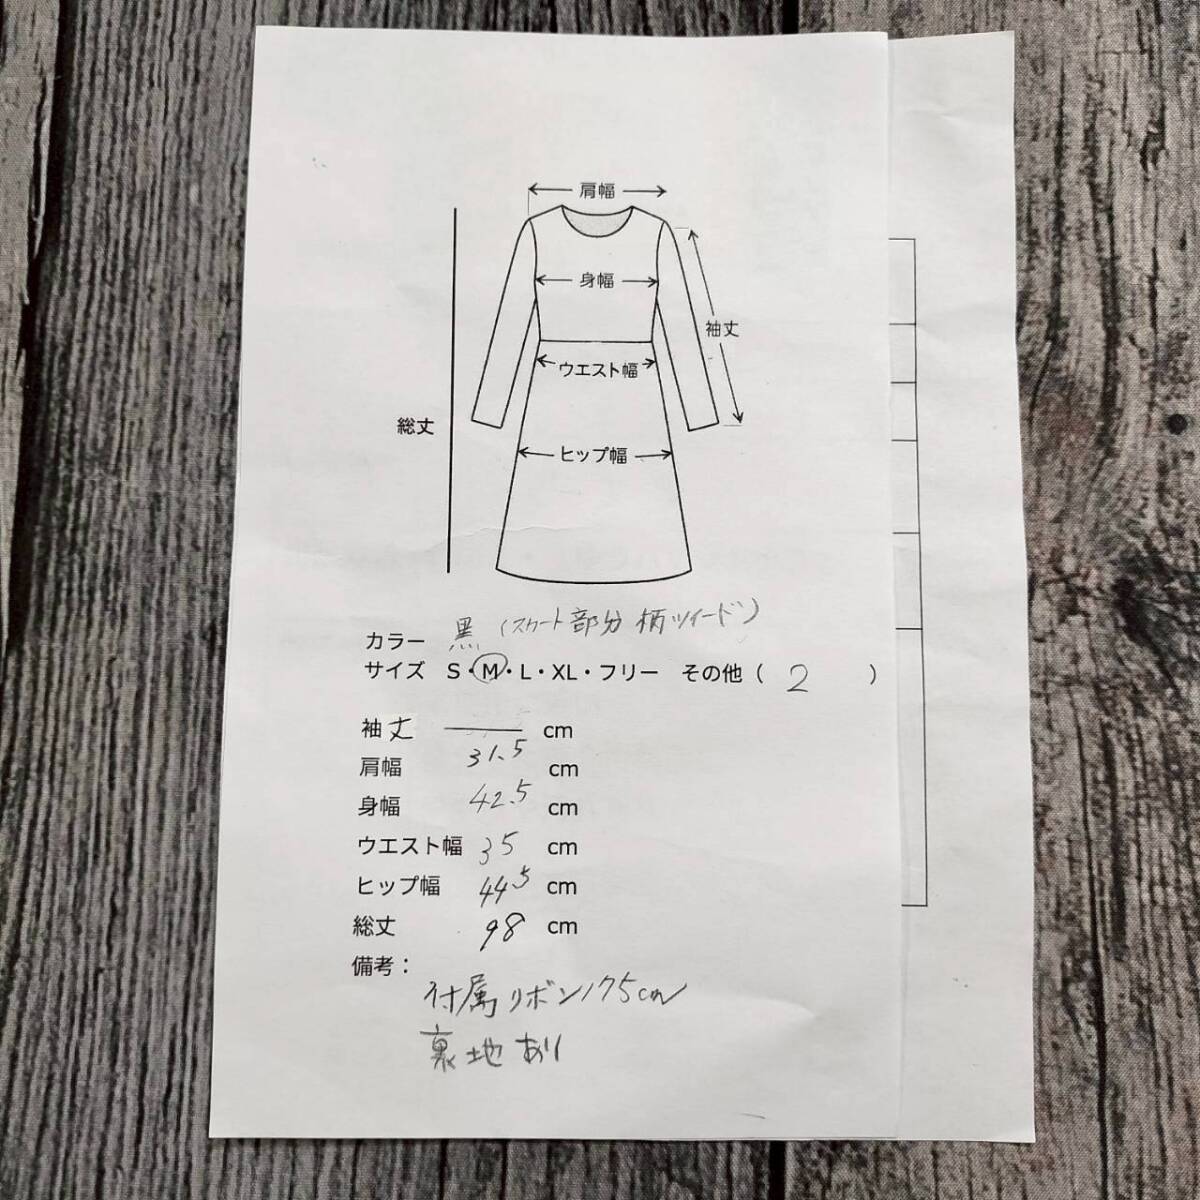 肩幅
身幅
袖丈
ウエスト幅
総丈
ヒップ幅
カラー 黒 (スカート部分 柄ツイード)
サイズ S・M・L・XL・フリー その他 ( 2 )
袖丈 ― cm
肩幅 31.5 cm
身幅 42.5 cm
ウエスト幅 35 cm
ヒップ幅 44.5 cm
総丈 98 cm
備考：
付属リボン175cm
裏地あり